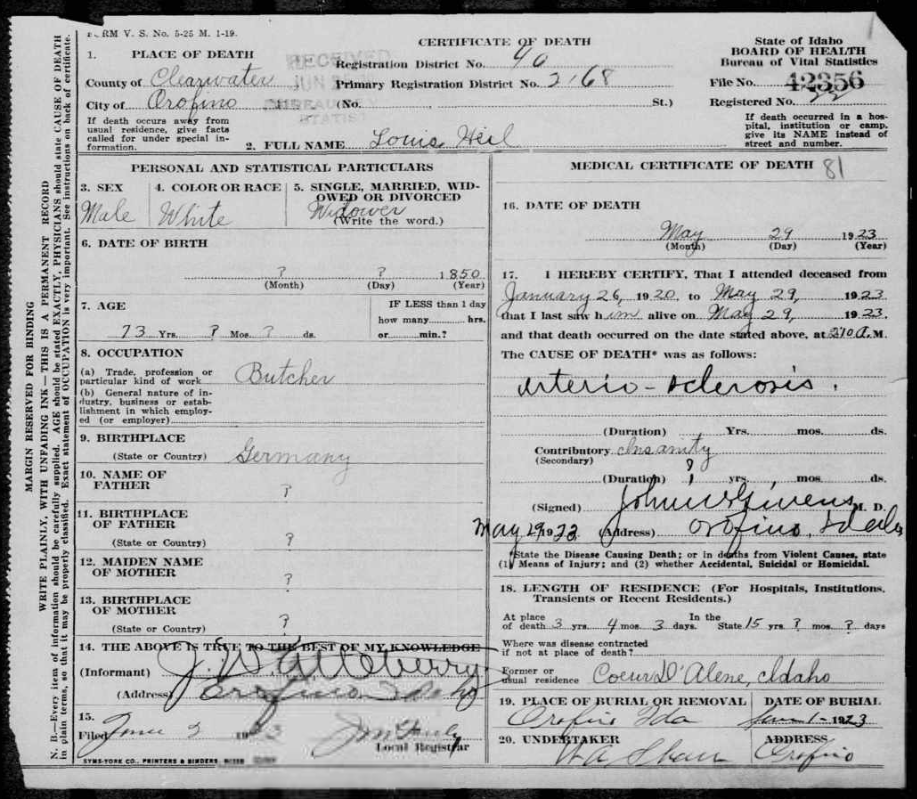 FORM V. S. No. 5-25 M. 1-19.
CERTIFICATE OF DEATH
State of Idaho
BOARD OF HEALTH
Bureau of Vital Statistics
1. PLACE OF DEATH
RECEIVED
JUN
County of Clearwater
City of Orofino
Registration District No. 40
Primary Registration District No. 2168
(No. St.)
File No. 42356
Registered No. 22
If death occurs away from usual residence, give facts called for under special information.
If death occurred in a hospital, institution or camp, give its NAME instead of street and number.
2. FULL NAME Louis Heil
PERSONAL AND STATISTICAL PARTICULARS
3. SEX
Male
4. COLOR OR RACE
White
5. SINGLE, MARRIED, WIDOWED OR DIVORCED
Widower
(Write the word.)
6. DATE OF BIRTH
? ? 1850
(Month) (Day) (Year)
7. AGE
73 Yrs. ? Mos. ? ds.
IF LESS than 1 day
how many hrs.
or min.?
8. OCCUPATION
(a) Trade, profession or particular kind of work Butcher
(b) General nature of industry, business or establishment in which employed (or employer)
9. BIRTHPLACE
(State or Country) Germany
10. NAME OF FATHER ?
11. BIRTHPLACE OF FATHER
(State or Country) ?
12. MAIDEN NAME OF MOTHER ?
13. BIRTHPLACE OF MOTHER
(State or Country) ?
14. THE ABOVE IS TRUE TO THE BEST OF MY KNOWLEDGE
(Informant) J. W. Atteberry
(Address) Orofino Idaho
15.
Filed June 2 1923
Local Registrar
SYMS-YORK CO., PRINTERS & BINDERS, BOISE
MEDICAL CERTIFICATE OF DEATH 81
16. DATE OF DEATH
May 29 1923
(Month) (Day) (Year)
17. I HEREBY CERTIFY, That I attended deceased from
January 26, 1920 to May 29, 1923
that I last saw him alive on May 29, 1923.
and that death occurred on the date stated above, at 2:10 A.M.
The CAUSE OF DEATH* was as follows:
arterio-sclerosis.
(Duration) Yrs. mos. ds.
Contributory Insanity
(Secondary)
(Duration) ? yrs. mos. ds.
(Signed) John W Givens M. D.
May 29 1923 (Address) Orofino, Idaho
*State the Disease Causing Death; or in deaths from Violent Causes, state
(1) Means of Injury; and (2) whether Accidental, Suicidal or Homicidal.
18. LENGTH OF RESIDENCE (For Hospitals, Institutions, Transients or Recent Residents.)
At place of death 3 yrs. 4 mos. 3 days. In the State 15 yrs. ? mos. ? days
Where was disease contracted if not at place of death?
Former or usual residence Coeur D'Alene, Idaho
19. PLACE OF BURIAL OR REMOVAL
Orofino Ida
DATE OF BURIAL
June 1- 1923
20. UNDERTAKER
W A Shaw
ADDRESS
Orofino
MARGIN RESERVED FOR BINDING
WRITE PLAINLY, WITH UNFADING INK—THIS IS A PERMANENT RECORD
N. B.—Every item of information should be carefully supplied. AGE should be stated EXACTLY, PHYSICIANS should state CAUSE OF DEATH in plain terms, so that it may be properly classified. Exact statement of OCCUPATION is very important. See instructions on back of certificate.